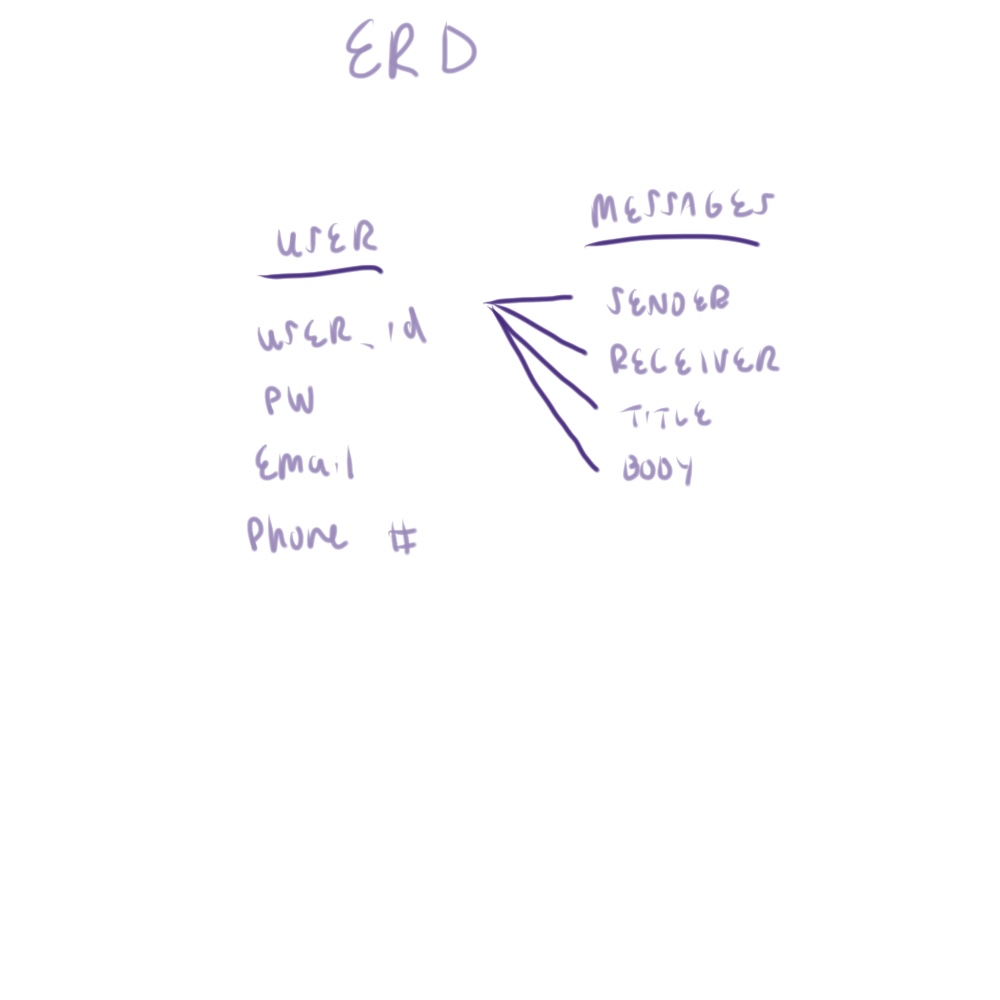 ERD
USER
USER_id
PW
Email
Phone #
MESSAGES
SENDER
RECEIVER
TITLE
BODY